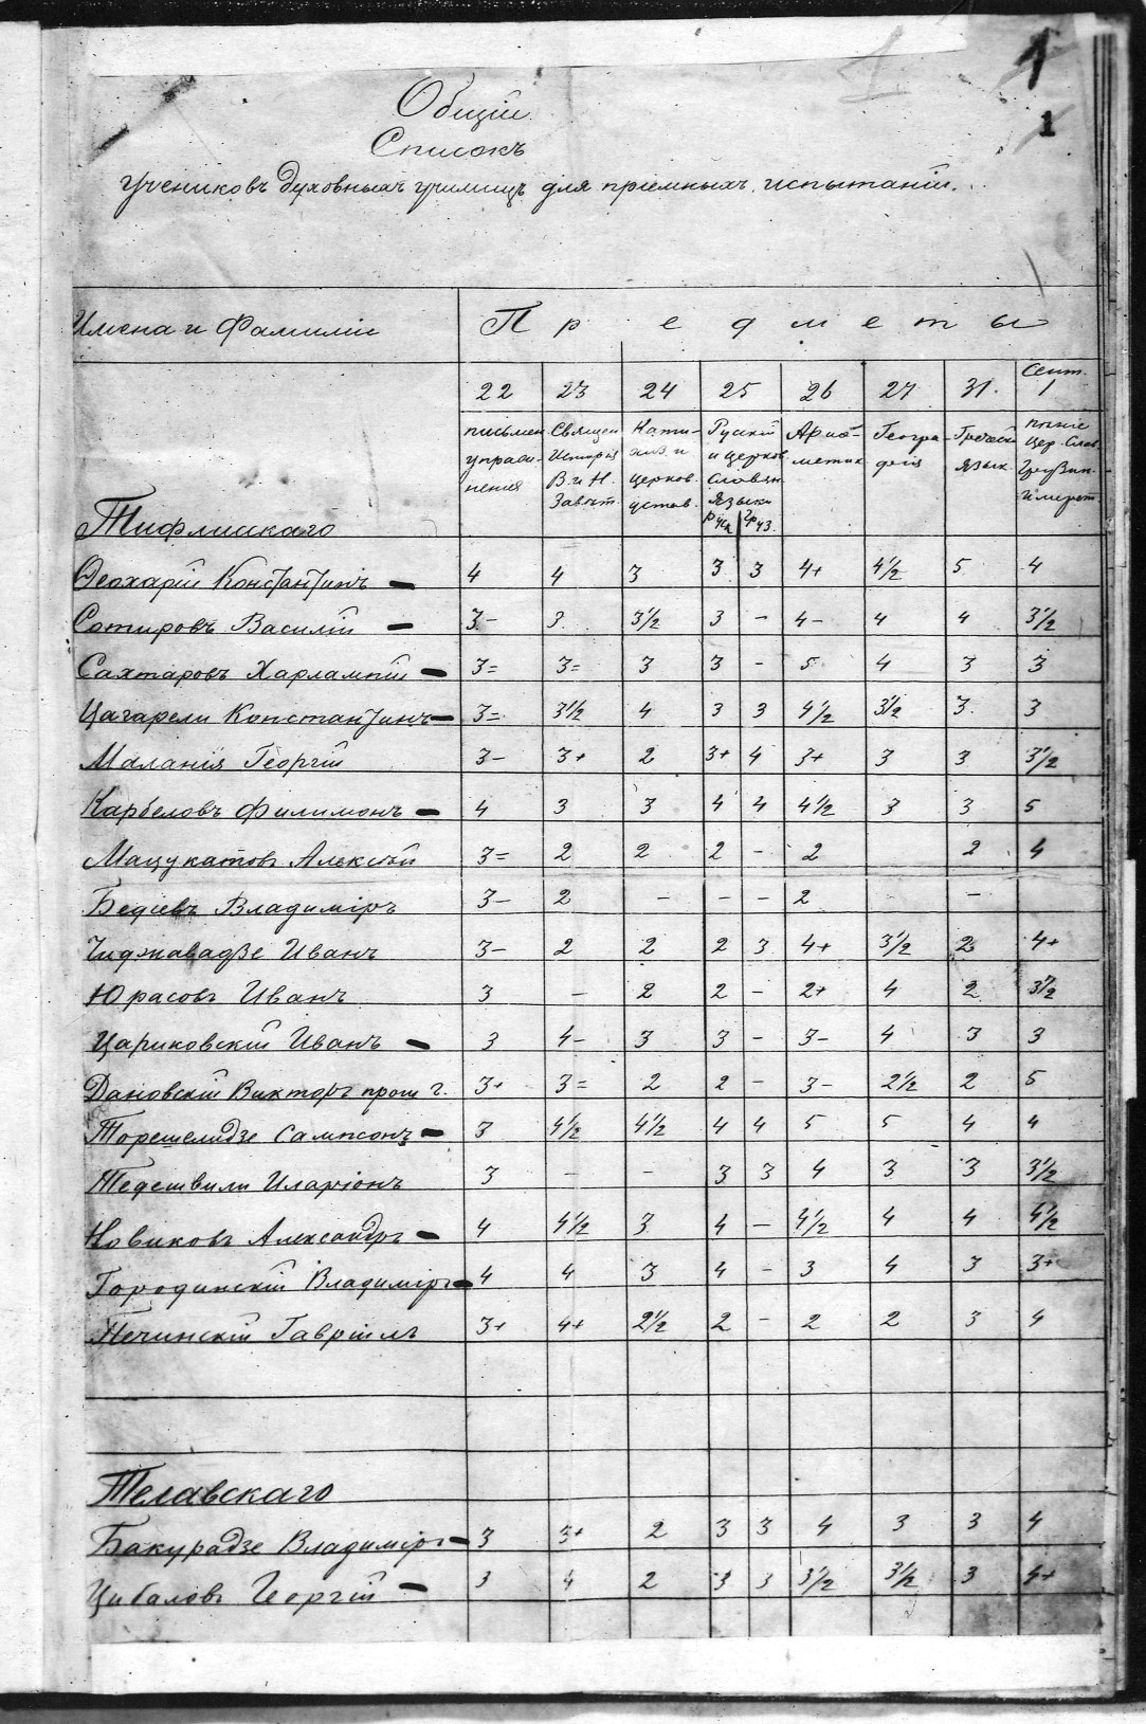 1
1
Общій
Списокъ
учениковъ духовныхъ училищъ для пріемныхъ испытаній.
Имена и Фамиліи Предметы
22 23 24 25 26 27 31. Сент. 1
письмен. упраж-нения Священ Исторія В. и Н. Завѣт. Кати-хиз. и церков. устав. Рускій и церков. словян. языки Руск Груз. Ариѳ-метик Геогра-фія Греческ язык. пѣніе Цер. Слав. Грузин. Имерет.
Тифлисскаго
Ѳеохарій Константинъ – 4 4 3 3 3 4+ 4½ 5 4
Сотировъ Василій – 3- 3 3½ 3 - 4- 4 4 3½
Сахтаровъ Харлампій – 3= 3= 3 3 - 5 4 3 3
Цагарели Константинъ – 3= 3½ 4 3 3 4½ 3½ 3 3
Маланія Георгій 3- 3+ 2 3+ 4 3+ 3 3 3½
Карбеловъ Филимонъ – 4 3 3 4 4 4½ 3 3 5
Мацукатовъ Алексѣй 3= 2 2 2 - 2 2 4
Бедіевъ Владиміръ 3- 2 - - - 2 -
Чиджавадзе Иванъ 3- 2 2 2 3 4+ 3½ 2 4+
Юрасовъ Иванъ 3 - 2 2 - 2+ 4 2 3½
Цариковскій Иванъ – 3 4- 3 3 - 3- 4 3 3
Дановскій Викторъ прош г. 3+ 3= 2 2 - 3- 2½ 2 5
Торешелидзе Сампсонъ – 3 4½ 4½ 4 4 5 5 4 4
Тедешвили Иларіонъ 3 - - 3 3 4 3 3 3½
Новиковъ Александръ – 4 4½ 3 4 - 4½ 4 4 4½
Городинскій Владиміръ – 4 4 3 4 - 3 4 3 3+
Печинскій Гавріилъ 3+ 4+ 2½ 2 - 2 2 3 4
Телавскаго
Бакурадзе Владиміръ – 3 3+ 2 3 3 4 3 3 4
Цибаловъ Георгій – 3 4 2 3 3 3½ 3½ 3 4+